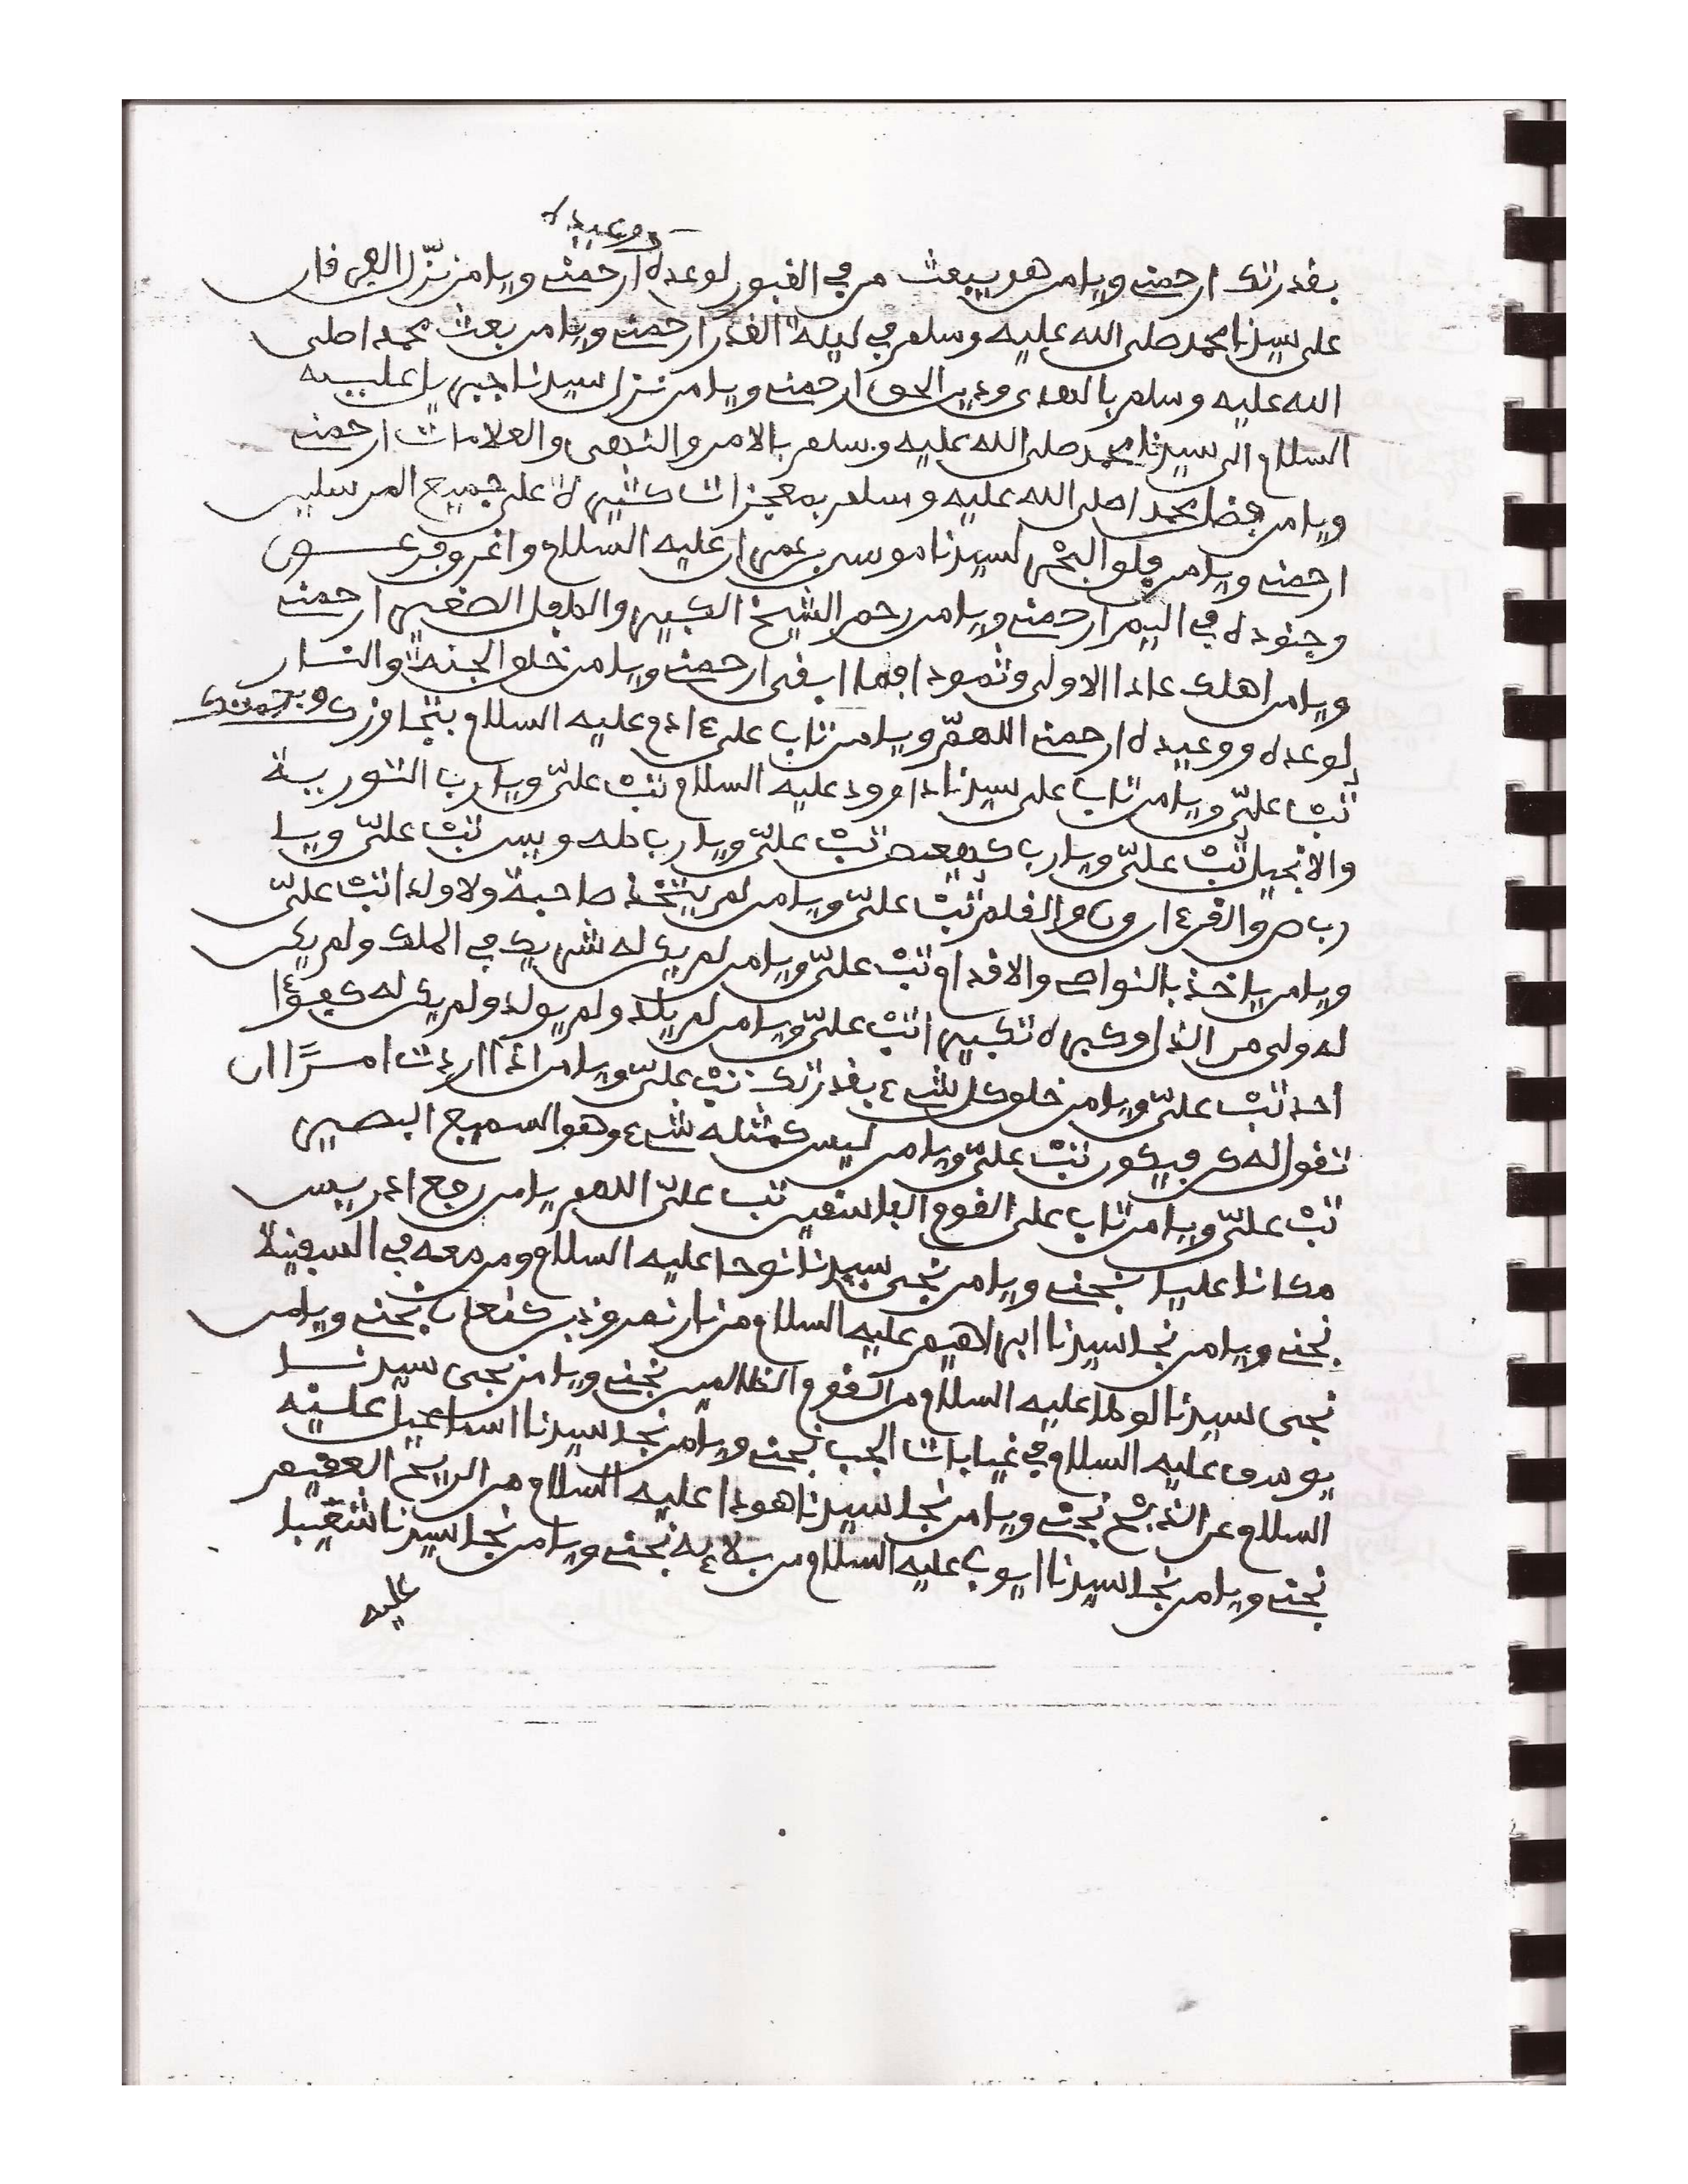 ووعيده
بقدرتك ارحمنے ويامن هو يبعث من في القبور لوعده ارحمنے ويامن نزّل الفرقان
على سيدنا محمد صلى الله عليه وسلم في ليلة القدر ارحمنے ويامن بعث محمدا صلى
الله عليه وسلم بالهدى ودين الحق ارحمنے ويامن نزل سيدنا جبريل عليه
السلام الى سيدنا محمد صلى الله عليه وسلم بالامر والنهى والعلامات ارحمنے
ويامن فضل محمدا صلى الله عليه وسلم بمعجزات كثيرة على جميع المرسلين
ارحمنے ويامن فلق البحر لسيدنا موسى بن عمران عليه السلام واغرق فرعون
وجنوده في اليم ارحمنے ويامن رحم الشيخ الكبير والطفل الصغير ارحمنے
ويامن اهلك عادا الاولى وثمودا فما ابقى ارحمنے ويامن خلق الجنة والنار
لوعده ووعيده ارحمنے اللهمّ ويامن تاب على ءادم عليه السلام بتجاوزك وبرحمتك
تبْ علىّ ويامن تاب على سيدنا داوود عليه السلام تبْ علىّ ويارب التورية
والانجيل تبْ علىّ ويارب كهيعص تبْ علىّ ويارب طه ويس تبْ علىّ ويا
رب ص والقرءان ون والقلم تبْ علىّ ويامن لم يتخذ صاحبة ولا ولدا تبْ علىّ
ويامن ياخذ بالنواص والاقدام تبْ علىّ ويامن لم يكن له شريك في الملك ولم يكن
له ولى من الذل وكبره تكبيرا تبْ علىّ ويامن لم يلد ولم يولد ولم يكن له كفؤا
احد تبْ علىّ ويامن خلق كل شےء بقدرتك تبْ علىّ ويامن اذا اردت امرًا ان
تقول له كن فيكون تبْ علىّ ويامن ليس كمثله شےء وهو السميع البصير
تبْ علىّ ويامن تاب على القوم الفاسقين تب علىّ اللهم يامن رفع ادريس
مكانا عليا نجنے ويامن نجى سيدنا نوحا عليه السلام ومن معه في السفينة
نجنے ويامن نجا سيدنا ابراهيم عليه السلام من نار نمروذ بن كنعان نجنے ويامن
نجى سيدنا لوطا عليه السلام من القوم الظالمين نجنے ويامن نجى سيدنا
يوسف عليه السلام في غيابات الجب نجنے ويامن نجا سيدنا اسماعيل عليه
السلام عن الذبح نجنے ويامن نجا سيدنا هودا عليه السلام من الريح العقيم
نجنے ويامن نجا سيدنا ايوب عليه السلام من بلاءه نجنے ويامن نجا سيدنا شعيبا
عليه